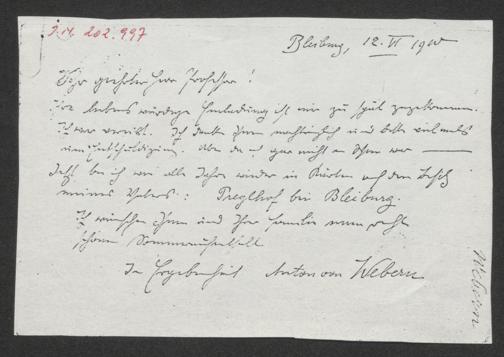 I.N. 202.997
Bleiburg, 12. VI 1910
Sehr geehrter Herr Professor!
Ihre liebenswürdige Einladung ist mir zu spät zugekommen.
Ich war verreist. Ich danke Ihnen nachträglich und bitte vielmals
um Entschuldigung. Aber da ich gar nicht in Wien war
Jetzt bin ich wie alle Jahre wieder in Kärnten auf dem Besitz
meines Vaters: Preglhof bei Bleiburg.
Ich wünsche Ihnen und Ihrer Familie einen recht
schönen Sommeraufenthalt
In Ergebenheit Anton von Webern
Webern